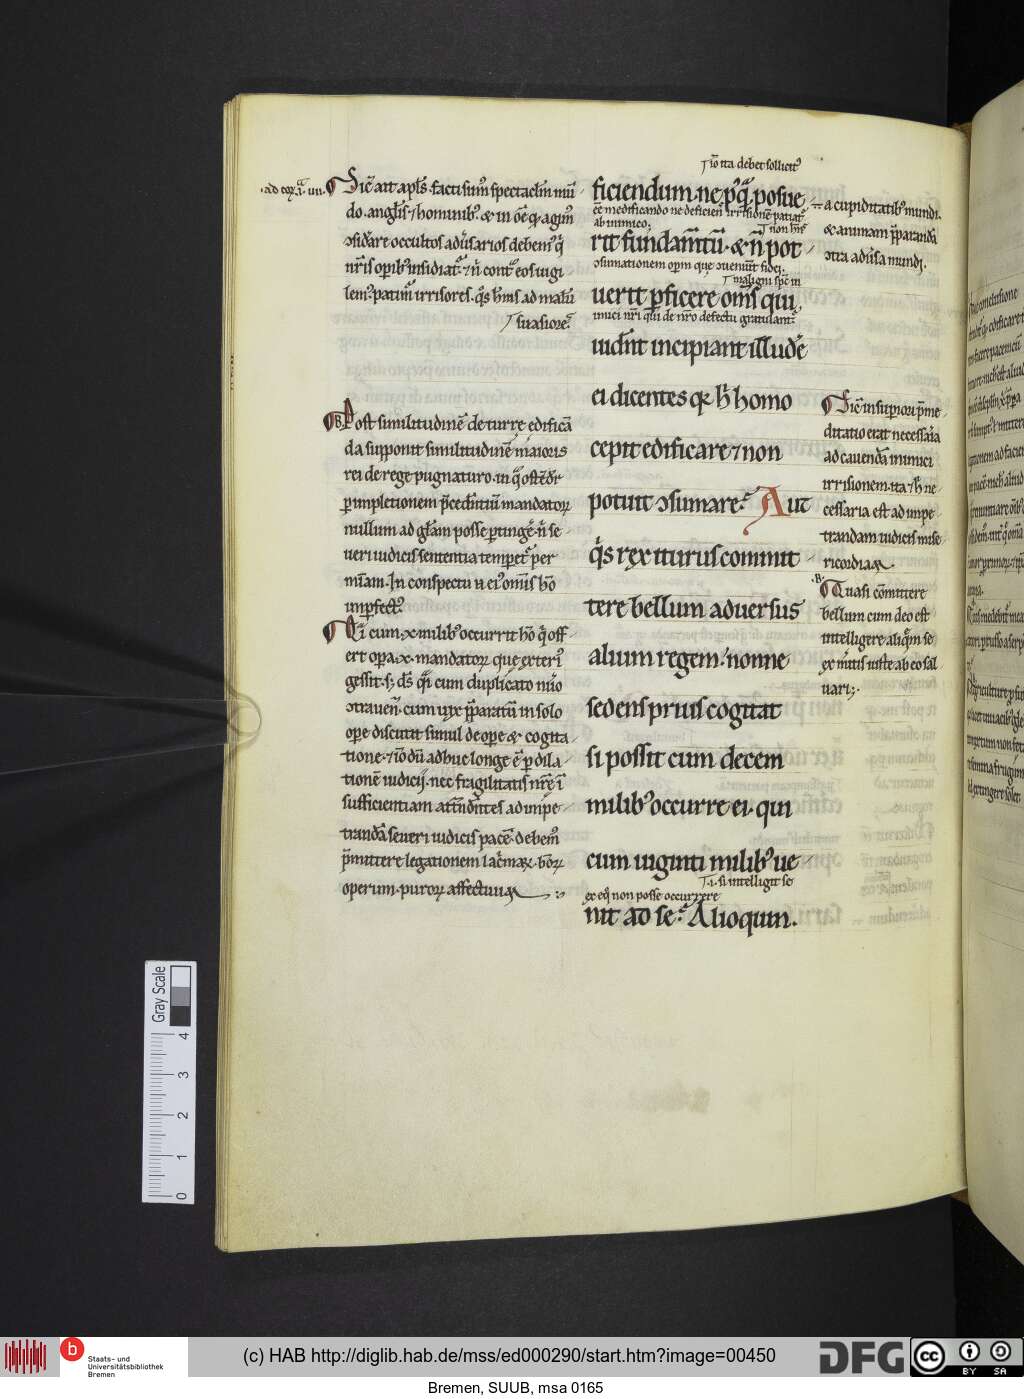 ad coꝝ. i͛. iiii.
Sic̄ ait apl̄s. facti sum̄ spectacl̄m mū
do. angl̄is ⁊ hominibꝰ. & in ōi q̄ agim̄
ↄsid̄are occultos adu̾sarios debemꝰ q̄
nr̄is oꝑibꝰ insidiat᷑. ⁊ n̄ cont᷑ eos uigi
lemꝰ. patim᷑ irrisores. q̄s hīns ad malū
suasiores.
B Post similitudinē de turre edificā
da supponit similitudinē maioris
rei de rege pugnaturo. in q̊ ostēd̄r
ꝑ impletionem p̄cedentiū mandatoꝝ
nullum ad gl̄am posse ꝑtingē. n̄ se
ueri iudicis sententia temꝑet᷑ per
mīam. In conspectu n̄ eiꝰ omīs hō
imꝑfectꝰ.
Qi cum .x. milibꝰ occurrit hō q̄ off
ert oꝑa .x. mandatoꝝ que exteriꝰ
gessit. s; d̄s q̄i cum duplicato nūo
ↄtra uen̄. cum uix p̄paratū in solo
oꝑe discutit simul de oꝑe & cogita
tione. ⁊ iō dū adhuc longe ē ꝑ dila
tionē iudicij. nec fragilitatis nr̄e ī
sufficientiam attn̄dentes ad impe
trandā seueri iudicis pacē. debemꝰ
p̄mittere legationem lac̄maꝝ. bōꝝ
operum. puroꝝ affectuuꝝ
iō ita debet sollicitꝰ
ficiendum. ne p̾ꝗᷓ posue
c̄e in edificando ne deficien̄ irrisionē patiat᷑
ab inimico;
non hn̄s
rit fundam̄tū. & n̄ pot
ↄsumationem oꝑm que ↄueniūt fidei.
maligni spc̄ in
uerit ꝑficere om̄s qui
imici nr̄i qui de nr̄o defectu gratulant᷑.
uid̄nt incipiant illudē
ei dicentes qꝛ h̄ homo
cepit edificare ⁊ non
potuit ↄsumare.᷑ Aut
q̄s rex iturus commit
tere bellum aduersus
alium regem.᷑ nonne
sedens prius cogitat
si possit cum decem
milibꝰ occurre ei. qui
cum uiginti milibꝰ ue
.i. si intelligit se
ex eq̊ non posse occurrere
nit ad se.᷑ Alioquin.
a cupiditatibꝰ mundi.
& animam p̄parandā
ↄtra adu̾sa mundi.
Sic̄ in suꝑiori p̄me
ditatio erat necessaria
ad cauendā inimici
irrisionem. ita ⁊ h̄ ne
cessaria est ad impe
trandam iudicis mise
ricordiaꝝ.
.B.
Quasi cōmittere
bellum cum deo est
intelligere aliq̄m se
ex mītis iuste ab eo sal
uari;.
(c) HAB http://diglib.hab.de/mss/ed000290/start.htm?image=00450
Bremen, SUUB, msa 0165
Gray Scale
0 1 2 3 4
b
Staats- und
Universitätsbibliothek
Bremen
DFG
cc BY SA